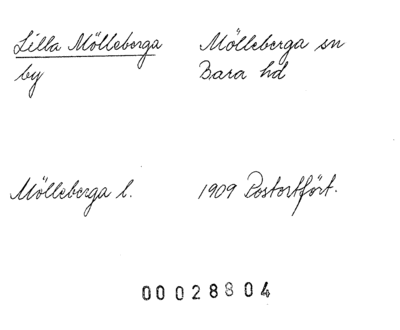 Lilla Mölleberga Mölleberga sn
by Bara hd
Mölleberga l. 1909 Postortfört.
00028804